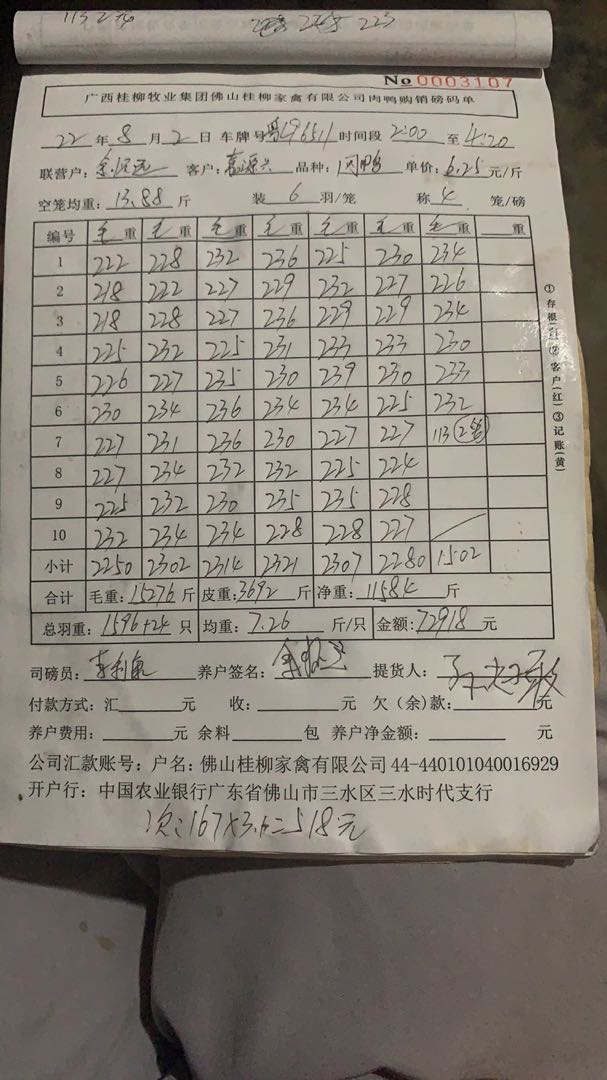 223
No 0003107
广西桂柳牧业集团佛山桂柳家禽有限公司肉鸭购销磅码单
22 年 8 月 2 日 车牌号 粤L96511 时间段 2:00 至 4:20
联营户: 客户: 品种: 单价: 6.25 元/斤
空笼均重: 13.88 斤 装 6 羽/笼 称 4 笼/磅
编号 毛重 毛重 毛重 毛重 毛重 毛重 毛重 重
1 222 228 232 236 225 230 234
2 218 222 227 229 232 227 226
3 218 228 227 236 229 229 234
4 225 232 225 231 233 233 230
5 226 227 235 230 239 230 233
6 230 234 236 234 234 225 232
7 227 231 236 230 227 227 113 2笼
8 227 234 232 232 225 224
9 225 232 230 235 235 228
10 232 234 234 228 228 227
小计 2250 2302 2314 2321 2307 2280 1502
合计 毛重: 15276 斤 皮重: 3692 斤 净重: 11584 斤
总羽重: 1596+24 只 均重: 7.26 斤/只 金额: 72918 元
司磅员: 养户签名: 提货人:
付款方式: 汇 元 收: 元 欠(余)款: 元
养户费用: 元 余料 包 养户净金额: 元
公司汇款账号: 户名: 佛山桂柳家禽有限公司 44-440101040016929
开户行: 中国农业银行广东省佛山市三水区三水时代支行
次: 167×3.1=518元
①存根(白)②客户(红)③记账(黄)